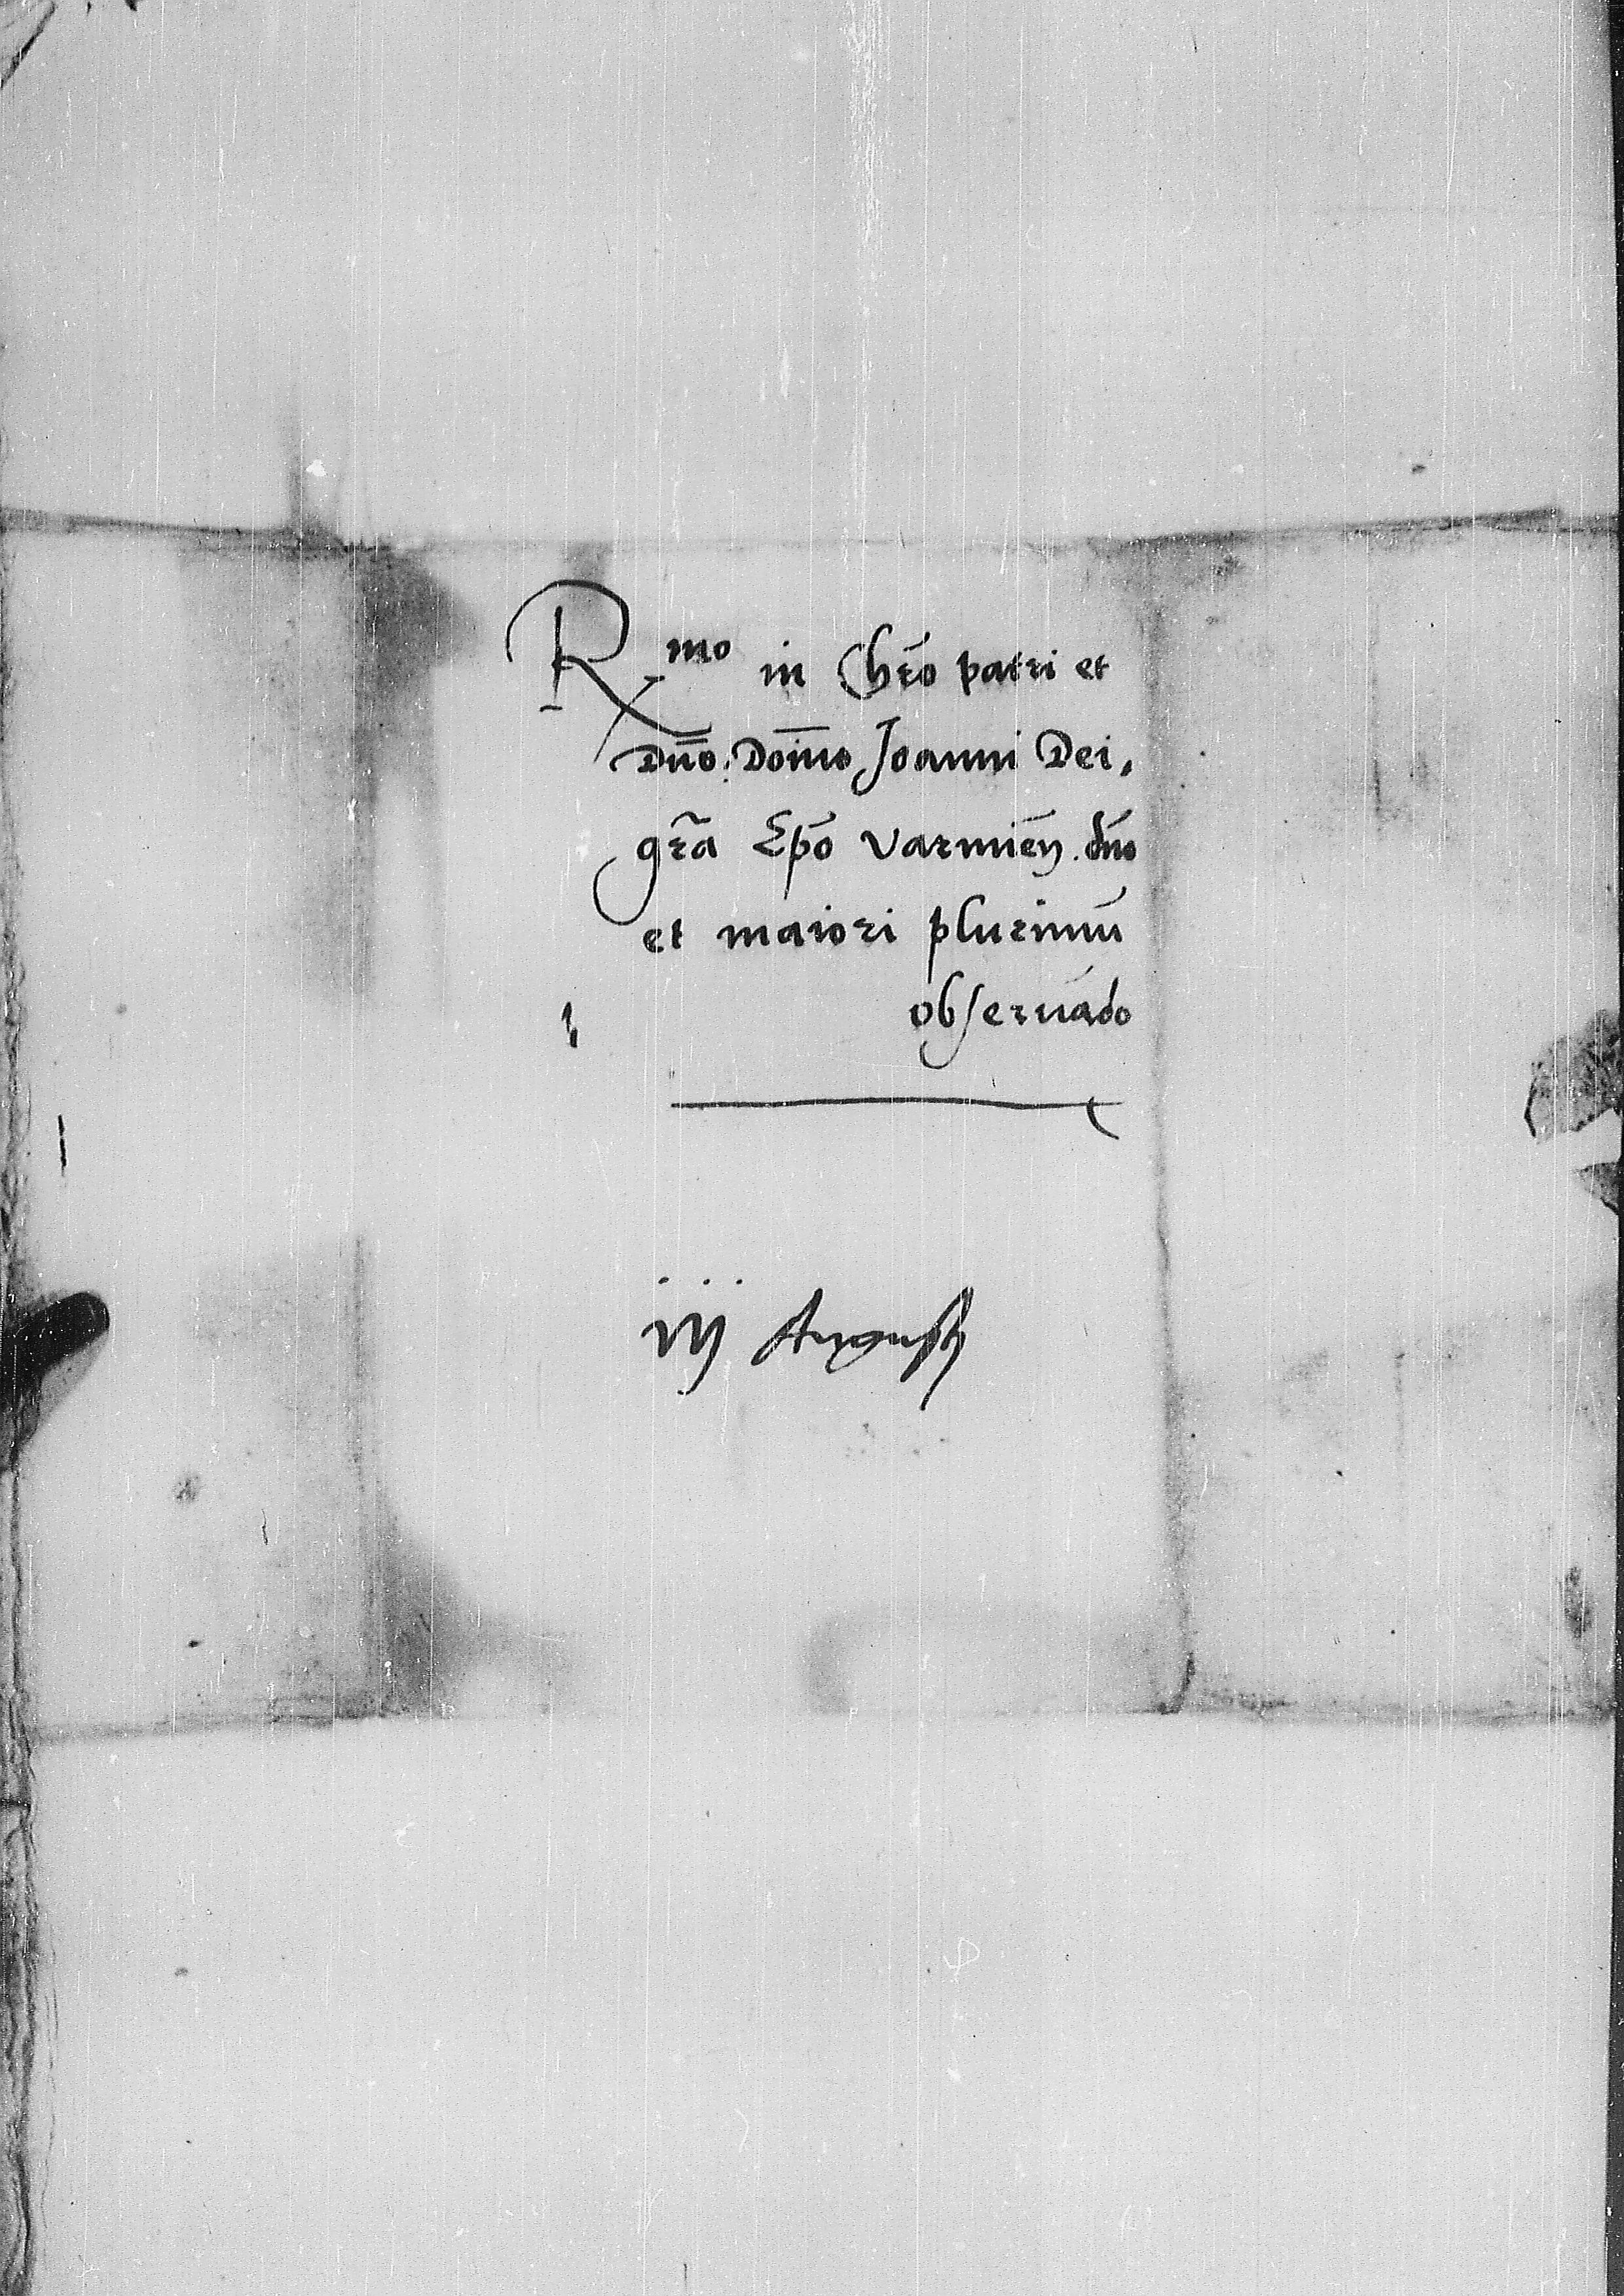 Rmo in Chro patri et
Dno: Domino Joanni Dei,
gra Epo varmien. dno
et maiori plurimu
observado
iij Augusti